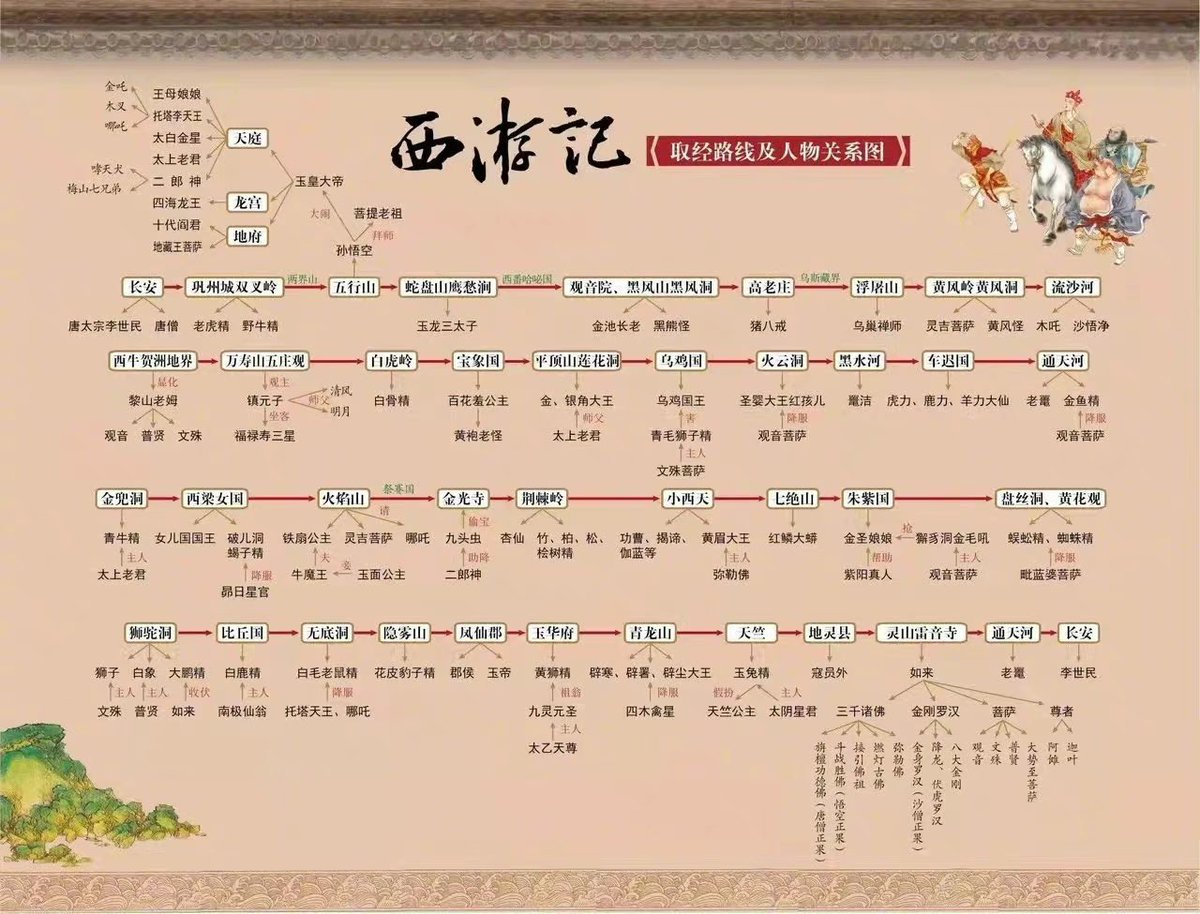 西游记
取经路线及人物关系图
金吒
木叉
哪吒
王母娘娘
托塔李天王
太白金星
太上老君
二郎神
哮天犬
梅山七兄弟
四海龙王
十代阎君
地藏王菩萨
天庭
龙宫
地府
玉皇大帝
大闹
菩提老祖
拜师
孙悟空
长安 巩州城双叉岭 两界山 五行山 蛇盘山鹰愁涧 西番哈咇国 观音院、黑风山黑风洞 高老庄 乌斯藏界 浮屠山 黄风岭黄风洞 流沙河
唐太宗李世民 唐僧 老虎精 野牛精 玉龙三太子 金池长老 黑熊怪 猪八戒 乌巢禅师 灵吉菩萨 黄风怪 木吒 沙悟净
西牛贺洲地界 万寿山五庄观 白虎岭 宝象国 平顶山莲花洞 乌鸡国 火云洞 黑水河 车迟国 通天河
显化 观主 清风
黎山老姆 镇元子 师父 明月 白骨精 百花羞公主 金、银角大王 乌鸡国王 圣婴大王红孩儿 鼍洁 虎力、鹿力、羊力大仙 老鼋 金鱼精
坐客 师父 害 降服 降服
观音 普贤 文殊 福禄寿三星 黄袍老怪 太上老君 青毛狮子精 观音菩萨 观音菩萨
主人
文殊菩萨
金兜洞 西梁女国 火焰山 祭赛国 金光寺 荆棘岭 小西天 七绝山 朱紫国 盘丝洞、黄花观
请 偷宝 抢
青牛精 女儿国国王 破儿洞 铁扇公主 灵吉菩萨 哪吒 九头虫 杏仙 竹、柏、松、 功曹、揭谛、 黄眉大王 红鳞大蟒 金圣娘娘 獬豸洞金毛吼 蜈蚣精、蜘蛛精
蝎子精 桧树精 伽蓝等
主人 降服 夫 妾 助降 主人 帮助 主人 降服
太上老君 昴日星官 牛魔王 玉面公主 二郎神 弥勒佛 紫阳真人 观音菩萨 毗蓝婆菩萨
狮驼洞 比丘国 无底洞 隐雾山 凤仙郡 玉华府 青龙山 天竺 地灵县 灵山雷音寺 通天河 长安
狮子 白象 大鹏精 白鹿精 白毛老鼠精 花皮豹子精 郡侯 玉帝 黄狮精 辟寒、辟署、辟尘大王 玉兔精 寇员外 如来 老鼋 李世民
主人 主人 收伏 主人 降服 祖翁 降服 假扮 主人
文殊 普贤 如来 南极仙翁 托塔天王、哪吒 九灵元圣 四木禽星 天竺公主 太阴星君 三千诸佛 金刚罗汉 菩萨 尊者
主人
太乙天尊
旃檀功德佛(唐僧正果)
斗战胜佛(悟空正果)
接引佛祖
燃灯古佛
弥勒佛
金身罗汉(沙僧正果)
降龙、伏虎罗汉
八大金刚
观音
文殊
普贤
大势至菩萨
阿傩
迦叶